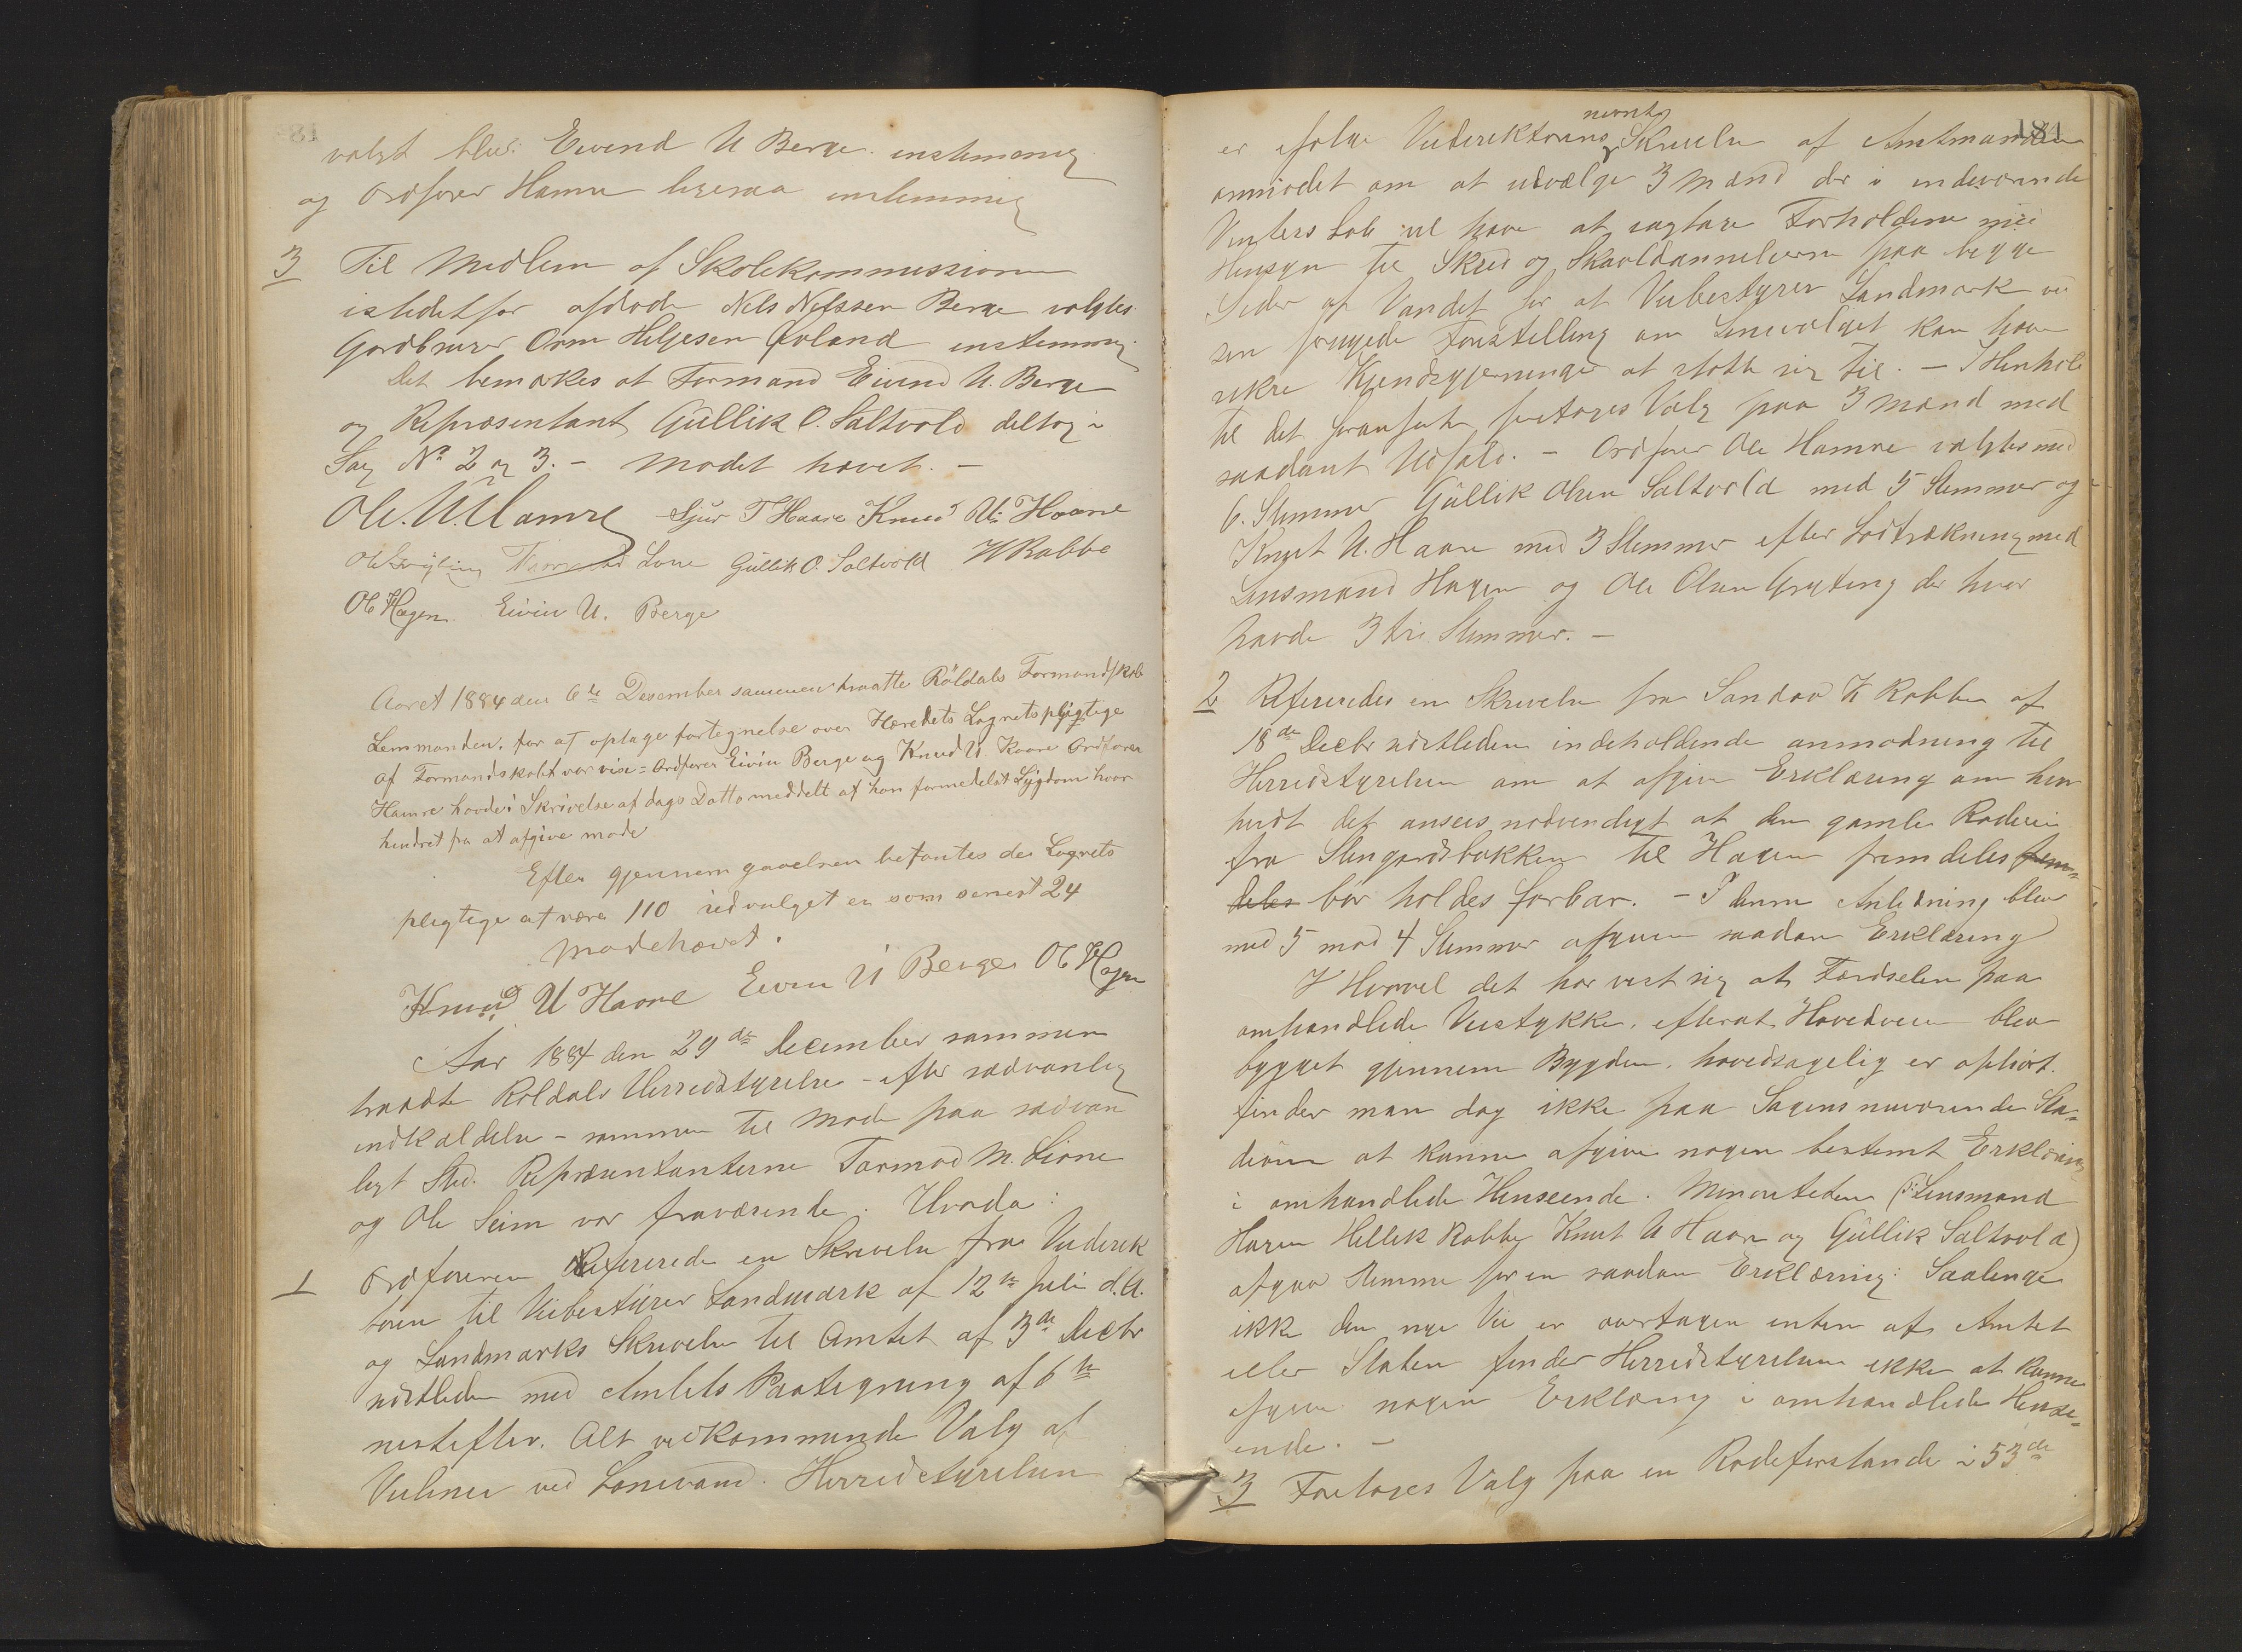 valgt blev: Eivend U Berge enstemmig
og Ordfører Hamre ligesaa enstemmig
3 Til Medlem af Skolekommissionen
istedetfor afdøde Nels Nelssen Berge valgtes
Gardbruger Orm Heljesen Øvland enstemmig
Det bemærkes at Formand Eivend U. Berge
og Repræsentant Gûllik O. Saltvold deltog i
Sag No 2 og 3. - Mødet hævet. -
Ole. U. Hamre Sjur T Haare Knud U. Haare
Ole Gryting Lone Gûllik O. Saltvold H Rabbe
Ol Hagen Eivin U. Berge
Aaret 1884 den 6te Desember sammen traatte Røldals Formandskab
Lemmanden, for at optage fortegnelse over Heredets Lagretspligtige
af Formandskabet var vise = Ordfører Eivin Berge og Knud U Haare Ordfører
Hamre havde i Skrivelse af dags Datto meddelt at han formedelst Sygdom hvar
hindret fra at afgive møde
Efter gjennem gaaelsen befantes de Lagrets
pligtige at være 110 udvalget er som senest 24
Møde hævet.
Knud U Haare Eivin U Berge Ol Hagen
Aar 1884 den 29de December sammen
traadte Røldals Herredstyrelse - efter sædvanlig
indkaldelse - sammen til Møde paa sædvan
ligt Sted. Repræsentanterne Tarmod M. Lione
og Ole Seim var fraværende. Hvorda:
1 Ordføreren Refererede en Skrivelse fra Veiderek
tøren til Veibestûrer Landmark af 12te Juli d.A.
og Landmarks Skrivelse til Amtet af 3de Decbr
nestleden med Amtets Paategning af 6te
nestefter. Alt vedkommende Valg af
Veilinie ved Lonevand. Herredstyrelsen
184
nevnte
er ifølge Veiderektørens Skrivelse af Amtmanden
anmodet om at udvælge 3 Mænd der i indeværende
Vinters Løb vil have at iagtage Forholdene med
Hensyn til Skred og Skavldannelserne paa begge
Sider af Vandet for at Veibestyrer Landmark ved
sin Forestilling om Linievalget kan have
sikre Kjendsgjerninger at støtte sig til. - I Henhold
til det foranførte foretoges Valg paa 3 Mænd med
saadant Udfald. - Ordfører Ole Hamre valgtes med
6. Stemmer Gûllik Olsen Saltvold med 5 Stemmer og
Knut U. Haare med 3 Stemmer efter Lodtrækning med
Lensmand Hagen og Ole Olsen Gryting der hver
havde 3 tre Stemmer. -
2 Refereredes en Skrivelse fra Sandov H Rabbe af
18de Decbr nestleden indeholdende anmodning til
Herredstyrelsen om at afgive Erklæring om hvor
hvidt det ansees nødvendigt at den gamle Rodevei
fra Stengardsbakken til Hagen fremdeles frem=
deles bør holdes farbar. - I denne Anledning blev
med 5 mod 4 Stemmer afgiven saadan Erklæring
Hvorvel det har vist sig at Færdselen paa
omhandlede Veistykke, efterat Hovedveien blev
bygget gjennem Bygden, hovedsagelig er ophørt.
finder man dog ikke paa Sagens nuværende Sta=
dium at kunne afgive nogen bestemt Erklæring
i omhandlede Henseende. Minoriteten (: Lensmand
Hagen Hellik Rabbe Knut U Haare og Gûllik Saltvold)
afgav Stemme for en saadan Erklæring: Saalenge
ikke den nye Vei er overtagen enten af Amtet
eller Staten finder Herredstyrelsen ikke at kunne
afgive nogen Erklæring i omhandlede Hense=
ende. -
3 Foretoges Valg paa en Rodeforstander i 53de